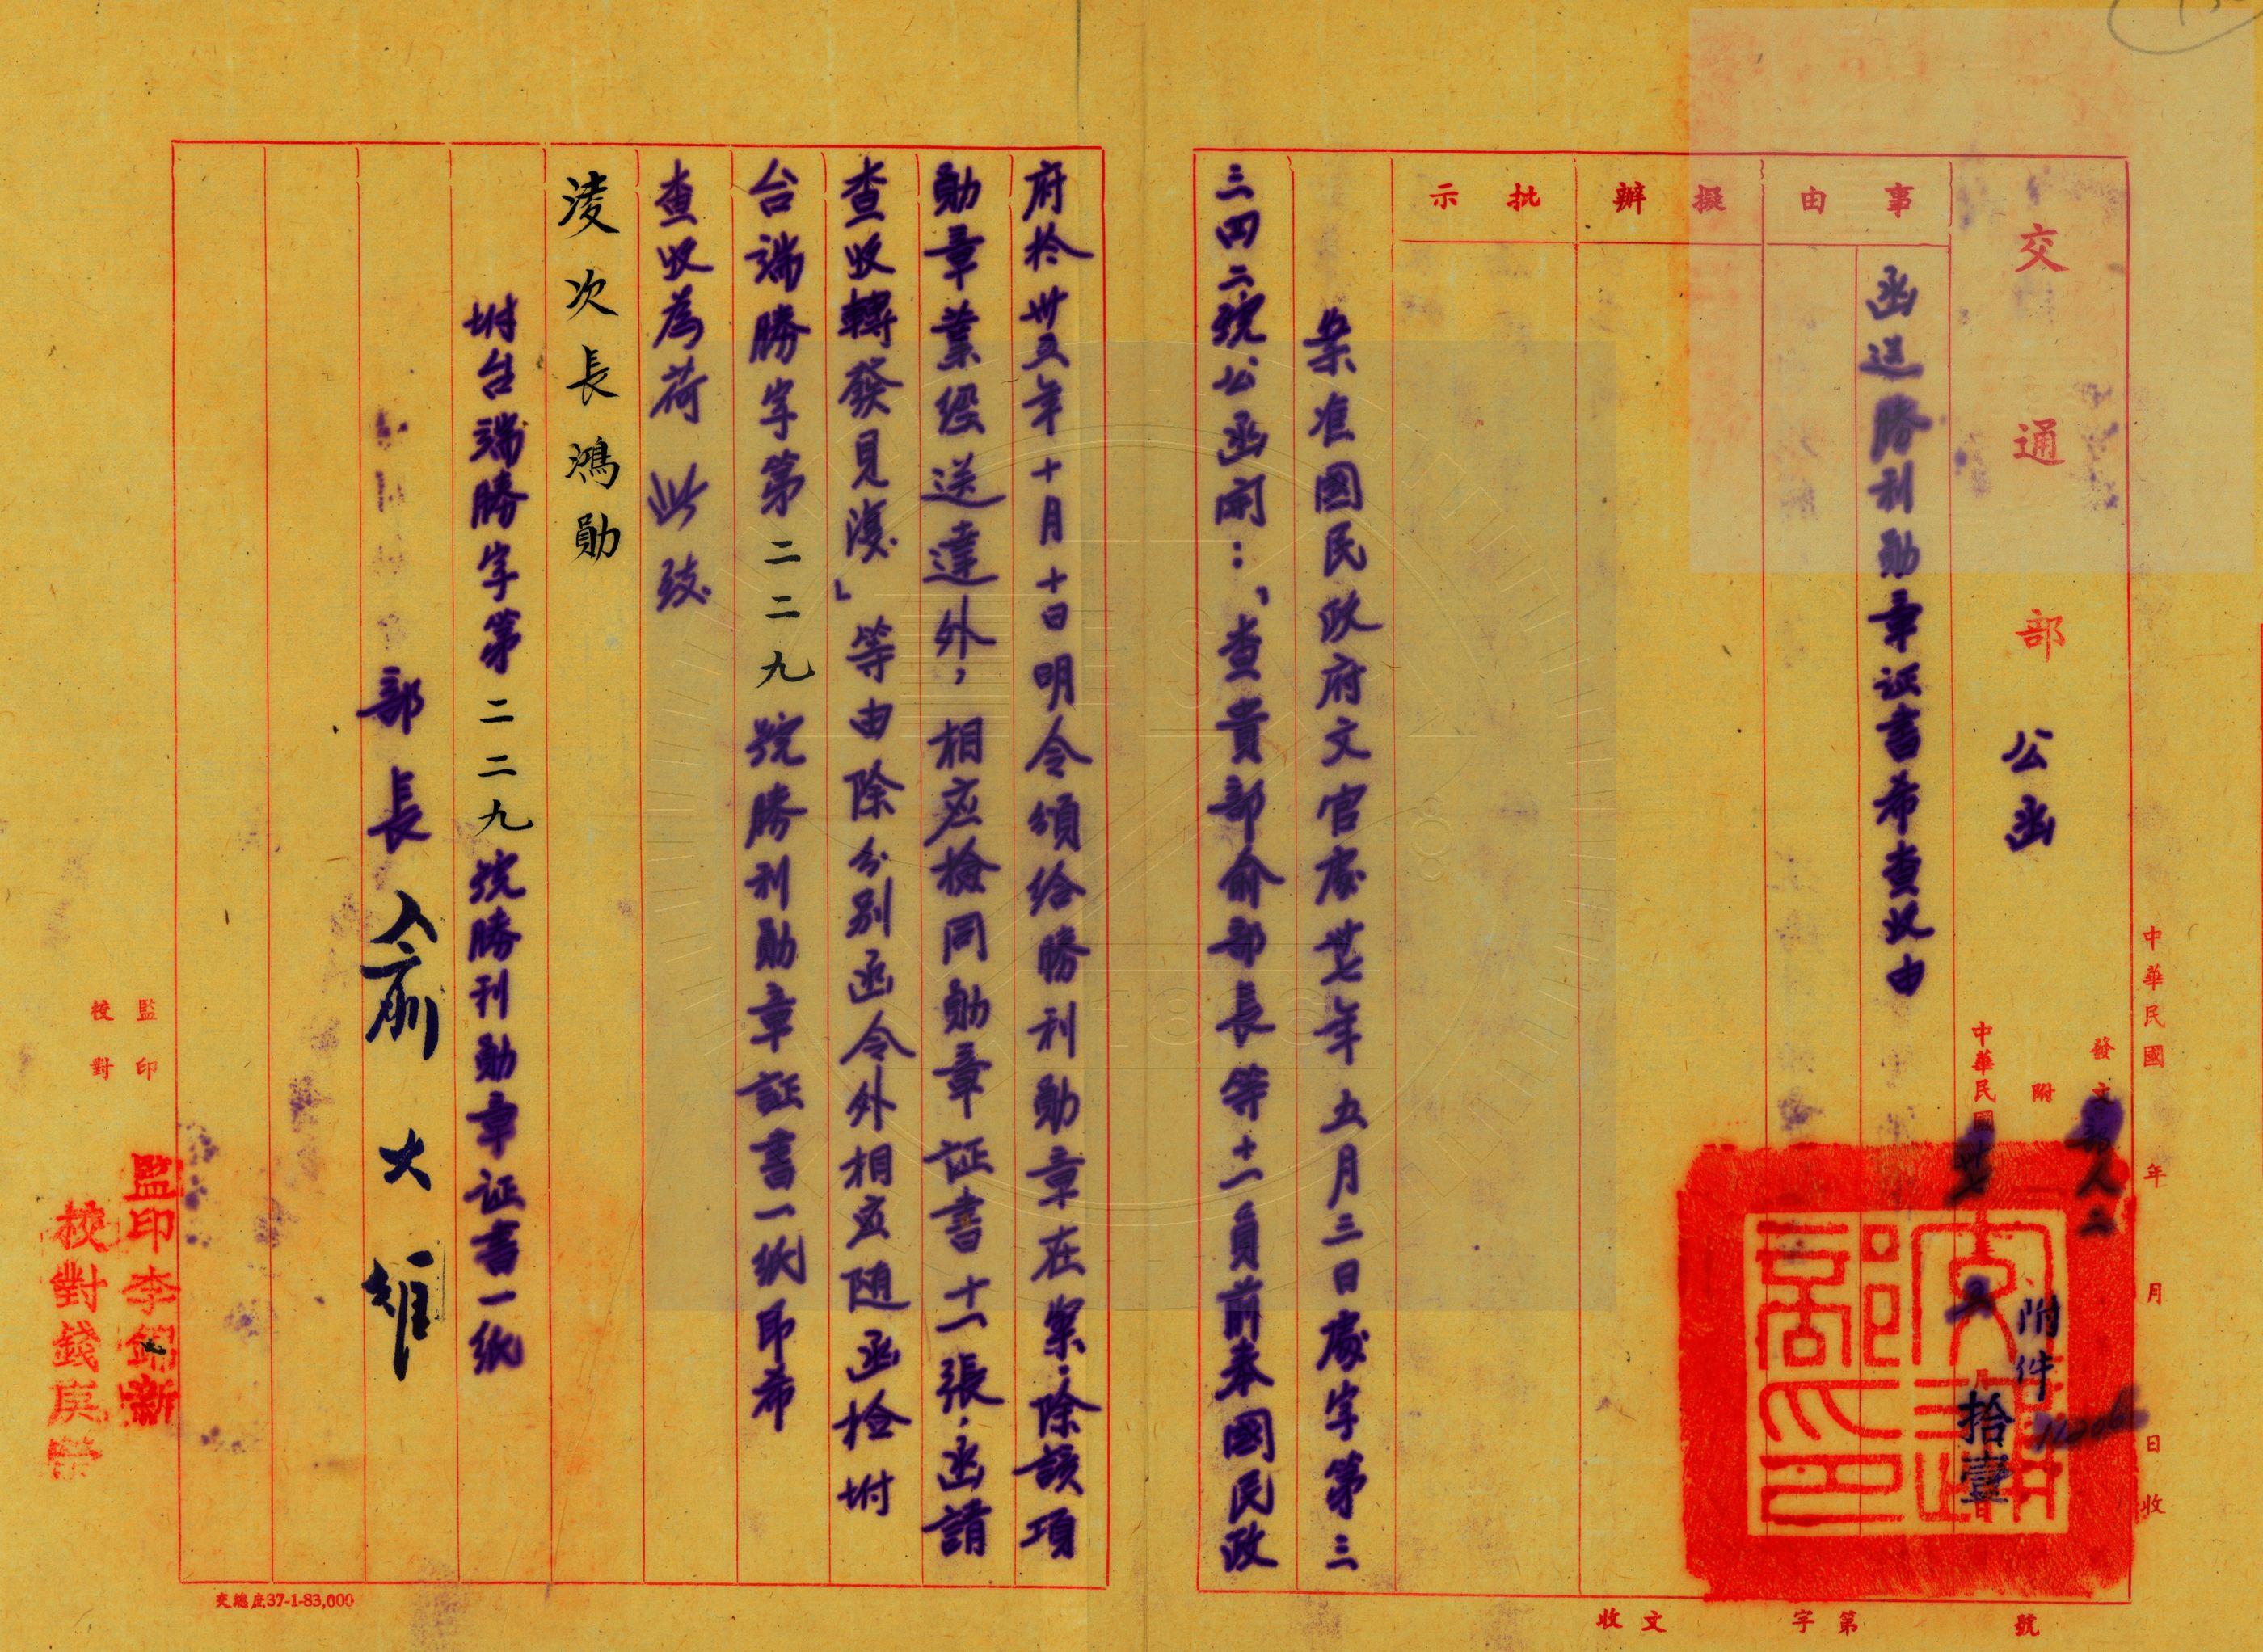 交通部 公函
中華民國 年 月 日收
發文部人二
附 附件
中華民國卅七年五月拾壹日
事由
函送勝利勛章证書希查收由
擬辦
批示
案准國民政府文官處卅七年五月三日處字第三
三四二號公函開：「查貴部俞部長等十一員前奉國民政
府於卅五年十月十日明令頒給勝利勛章在案：除該項
勛章業經送達外，相应檢同勛章证書十一張，函請
查收轉發見復」等由除分別函令外相应随函检坿
台端勝字第二二九號勝利勛章証書一紙即希
查收為荷 此致
淩次長鴻勛
坿台端勝字第二二九號勝利勛章证書一紙
部長俞大維
監印
校對
監印李錫新
校對錢庚榮
收文 字第 號
交總庄37-1-83,000